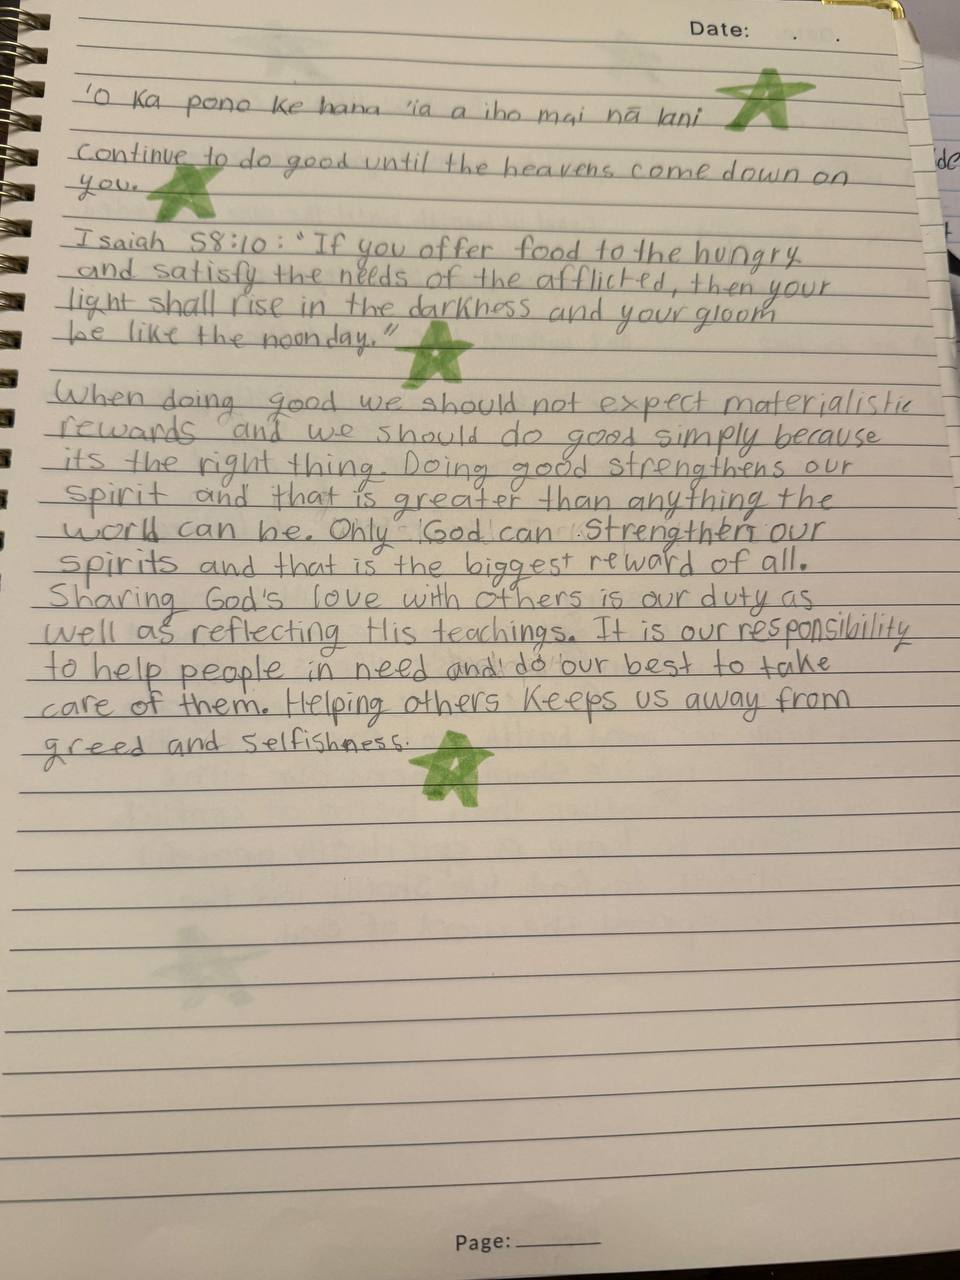 Date: . .
'O ka pono ke hana 'ia a iho mai nā lani
continue to do good until the heavens come down on
you.
Isaiah 58:10: "If you offer food to the hungry
and satisfy the needs of the afflicted, then your
light shall rise in the darkness and your gloom
be like the noonday."
When doing good we should not expect materialistic
rewards and we should do good simply because
its the right thing. Doing good strengthens our
spirit and that is greater than anything the
world can be. Only God can strengthen our
spirits and that is the biggest reward of all.
Sharing God's love with others is our duty as
well as reflecting His teachings. It is our responsibility
to help people in need and do our best to take
care of them. Helping others keeps us away from
greed and selfishness.
Page: